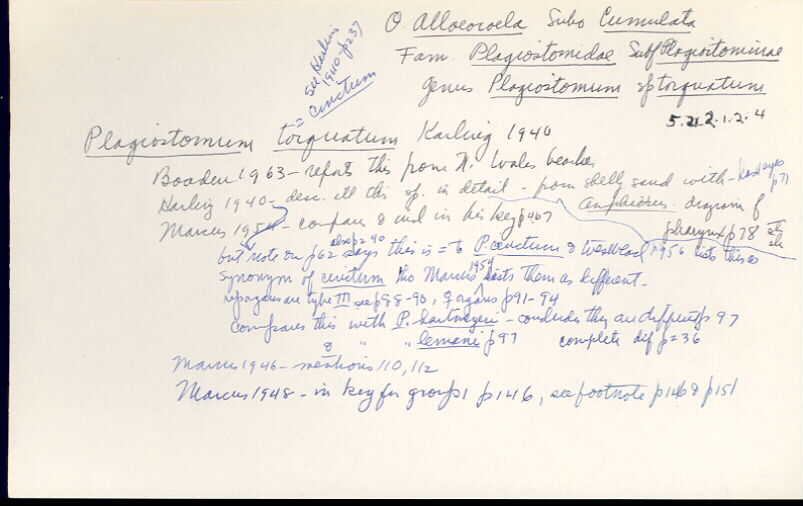 O. Alloeocoela Subo Cumulata
Fam. Plagiostomidae Subf Plagiostominae
Genus Plagiostomum sp torquatum
5.2.2.1.2.4
see Karling
1940-p237
= cinctum
Plagiostomum torquatum Karling 1940
Boaden 1963 - reports this from N. Wales beaches
Karling 1940 - desc. ill this sp. in detail - from shelly sand with - has eyes p71
amphioxus - diagram of
pharynx p78
Marcus 1954 - compare & incl in his key p 467
but note on p62 also p240 says this is = to P. cinctum & Westblad 1956 lists this as
synonym of cinctum tho Marcus 1954 lists them as different -
rep organs are type III see p88-90, ♀ organs p91-94
compares this with P. hartmeyeri - concludes they are different p 97
& " " lemani p97 complete dif p236
Marcus 1946 - mentions 110, 112
Marcus 1948 - in key for group 1 p146, see footnote p146 & p151